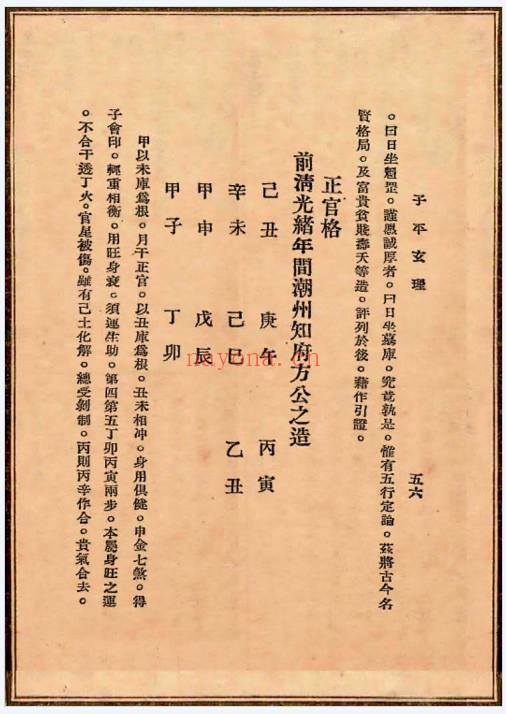 子平玄理　五六
。曰日坐魁罡。謹愿誠厚者。曰日坐墓庫。究竟孰是。惟有五行定論。茲將古今名
賢格局。及富貴貧賤壽夭等造。評列於後。藉作引證。
正官格
前清光緒年間潮州知府方公之造
己丑　庚午　丙寅
辛未　己巳　乙丑
甲申　戊辰
甲子　丁卯
甲以未庫爲根。月干正官。以丑庫爲根。丑未相冲。身用俱健。申金七煞。得
子會印。輕重相衡。用旺身衰。須運生助。第四第五丁卯丙寅兩步。本屬身旺之運
。不合干透丁火。官星被傷。雖有己土化解。總受剝制。丙則丙辛作合。貴氣合去。
nayona.cn